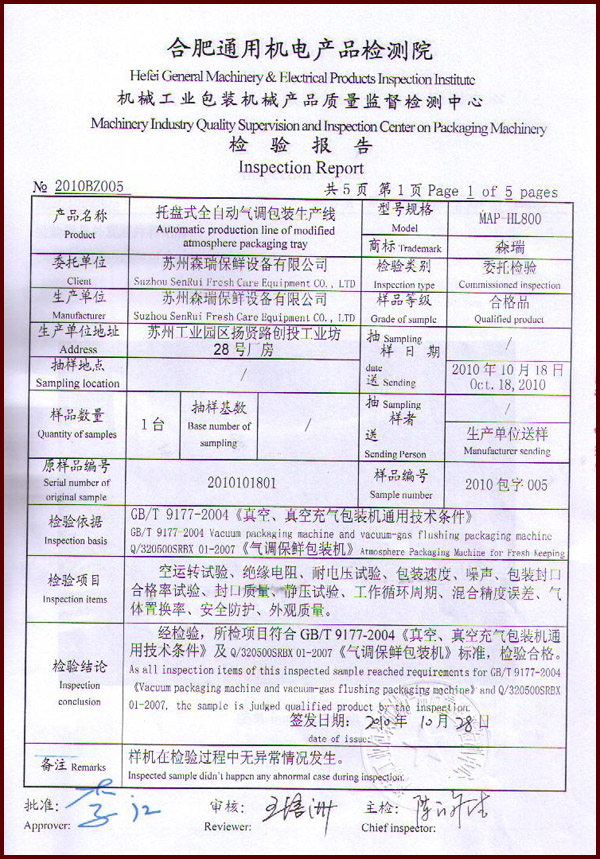 合肥通用机电产品检测院
Hefei General Machinery & Electrical Products Inspection Institute
机械工业包装机械产品质量监督检测中心
Machinery Industry Quality Supervision and Inspection Center on Packaging Machinery
检验报告
Inspection Report
№ 2010BZ005
共5页 第1页 Page 1 of 5 pages
产品名称
Product
托盘式全自动气调包装生产线
Automatic production line of modified
atmosphere packaging tray
型号规格
Model
MAP-HL800
商标 Trademark
森瑞
委托单位
Client
苏州森瑞保鲜设备有限公司
Suzhou SenRui Fresh Care Equipment CO., LTD
检验类别
Inspection type
委托检验
Commissioned inspection
生产单位
Manufacturer
苏州森瑞保鲜设备有限公司
Suzhou SenRui Fresh Care Equipment CO., LTD
样品等级
Grade of sample
合格品
Qualified product
生产单位地址
Address
苏州工业园区扬贤路创投工业坊
28号厂房
抽 Sampling
样日期
date
送 Sending
/
2010年10月18日
Oct. 18, 2010
抽样地点
Sampling location
/
样品数量
Quantity of samples
1台
抽样基数
Base number of
sampling
/
抽 Sampling
样者
送
Sending Person
/
生产单位送样
Manufacturer sending
原样品编号
Serial number of
original sample
2010101801
样品编号
Sample number
2010包字005
检验依据
Inspection basis
GB/T 9177-2004《真空、真空充气包装机通用技术条件》
GB/T 9177-2004 Vacuum packaging machine and vacuum-gas flushing packaging machine
Q/320500SRBX 01-2007《气调保鲜包装机》Atmosphere Packaging Machine for Fresh Keeping
检验项目
Inspection items
空运转试验、绝缘电阻、耐电压试验、包装速度、噪声、包装封口
合格率试验、封口质量、静压试验、工作循环周期、混合精度误差、气
体置换率、安全防护、外观质量。
检验结论
Inspection
conclusion
经检验，所检项目符合GB/T 9177-2004《真空、真空充气包装机通
用技术条件》及Q/320500SRBX 01-2007《气调保鲜包装机》标准，检验合格。
As all inspection items of this inspected sample reached requirements for GB/T 9177-2004
《Vacuum packaging machine and vacuum-gas flushing packaging machine》and Q/320500SRBX
01-2007, the sample is judged qualified product by the inspection.
签发日期：2010年10月28日
date of issue:
备注 Remarks
样机在检验过程中无异常情况发生。
Inspected sample didn't happen any abnormal case during inspection.
批准：
Approver:
审核：王培洲
Reviewer:
主检：
Chief inspector: